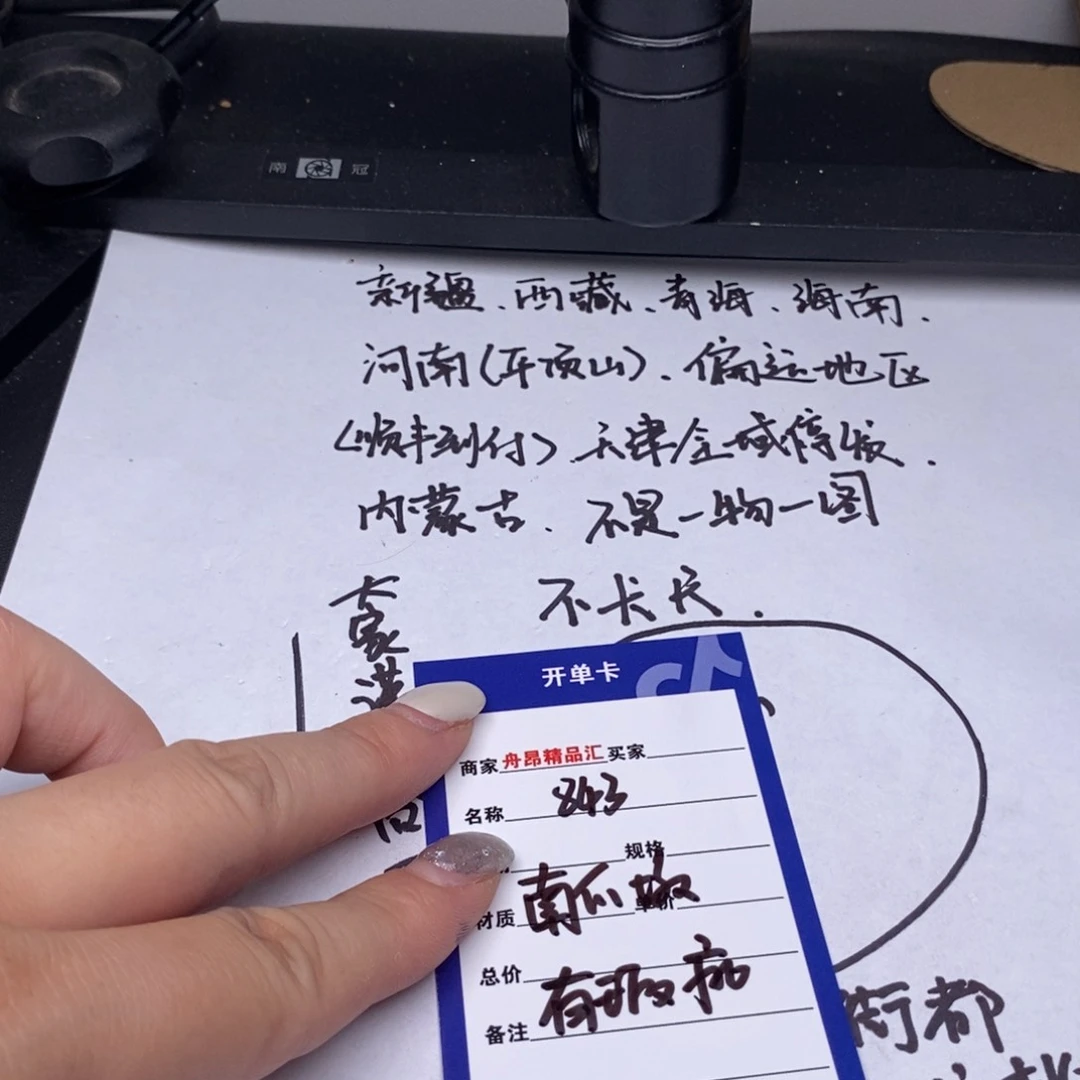 南 冠
新疆、西藏、青海、海南.
河南(平顶山)、偏远地区
<顺丰到付>天津全域停发.
内蒙古. 不是一物一图
不卡尺.
大家
开单卡
商家 舟昂精品汇 买家
名称 843
规格
材质 南瓜
单价
总价
备注 有瑕疵
街都